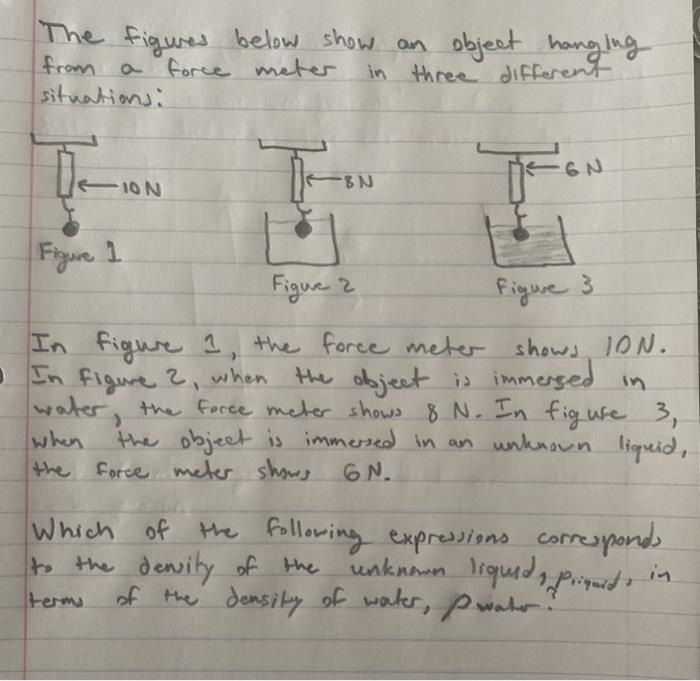 The figures below show an object hanging
from a force meter in three different
situations:
10 N
8 N
6 N
Figure 1
Figure 2
Figure 3
In figure 1, the force meter shows 10 N.
In figure 2, when the object is immersed in
water, the force meter shows 8 N. In figure 3,
when the object is immersed in an unknown liquid,
the force meter shows 6 N.
Which of the following expressions corresponds
to the density of the unknown liquid, ρliquid, in
terms of the density of water, ρwater?